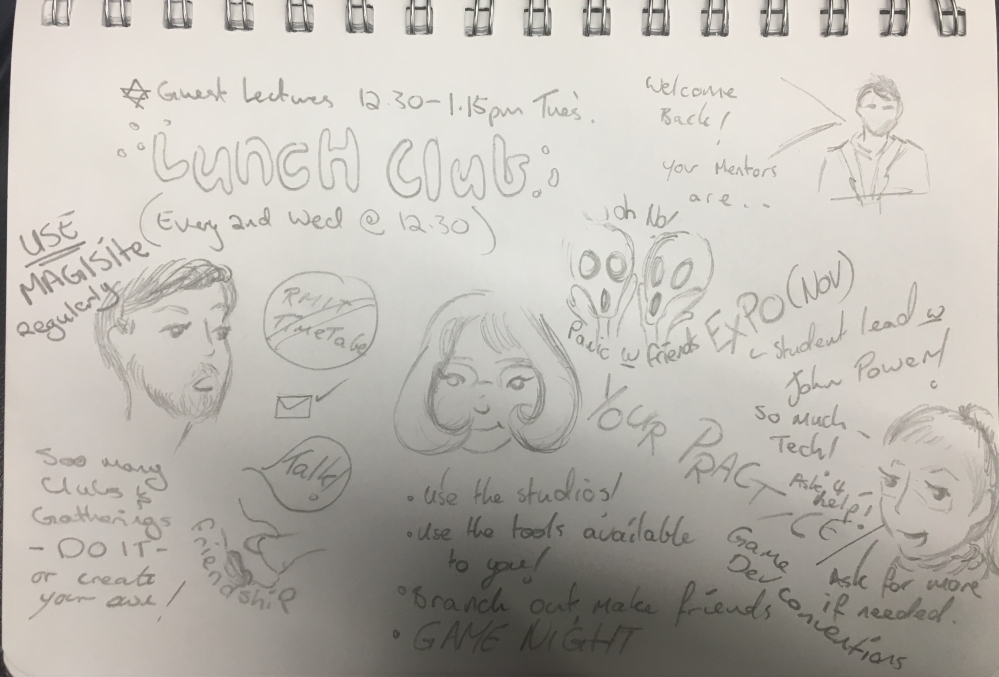 Guest Lectures 12.30-1.15pm Tues.
Lunch Club
(Every 2nd Wed @ 12.30)
Welcome
Back!
your Mentors
are...
USE
MAGISite
Regularly
RMIT
TimeTable
Talk!
Friendship
Soo many
Clubs &
Gatherings
- DO IT -
or create
your own!
oh No!
Panic w friends
EXPO (NOV)
- student lead w
John Power!
So much
Tech!
YOUR PRACTICE
Ask 4
help!
• Use the studios!
• Use the tools available
to you!
• Branch out make friends
• GAME NIGHT
Game
Dev Conventions
Ask for more
if needed.